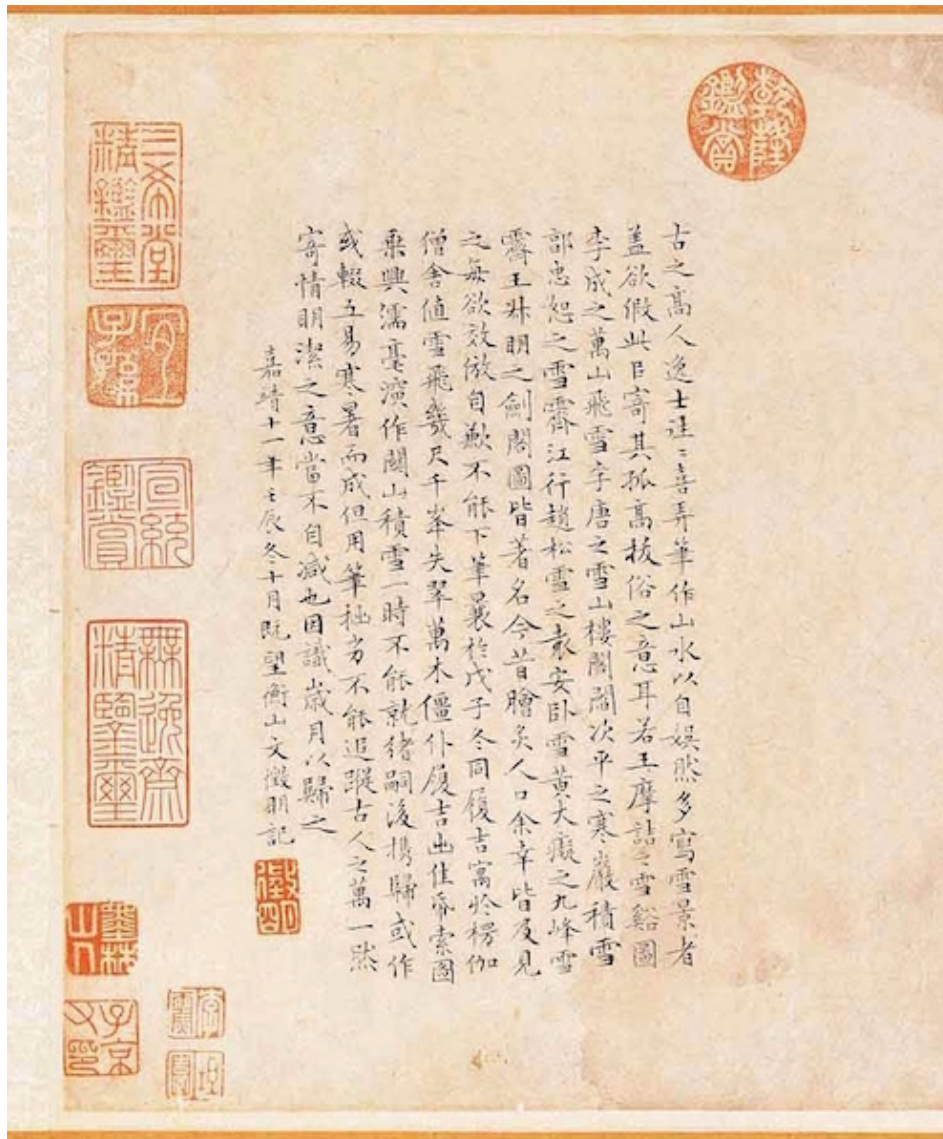 古之高人逸士往〻喜弄筆作山水以自娛然多寫雪景者
蓋欲假此以寄其孤高拔俗之意耳若王摩詰之雪谿圖
李成之萬山飛雪李唐之雪山樓閣閻次平之寒巖積雪
郭忠恕之雪霽江行趙松雪之袁安臥雪黃大癡之九峰雪
霽王叔明之劍閣圖皆著名今昔膾炙人口余幸皆及見
之每欲效倣自歉不能下筆曩於戊子冬同履吉寓於楞伽
僧舍值雪飛幾尺千峯失翠萬木僵仆履吉出佳帋索圖
乘興濡毫演作關山積雪一時不能就緒嗣後攜歸或作
或輟五易寒暑而成但用筆拙劣不能追蹤古人之萬一然
寄情明潔之意當不自減也因識歲月以歸之
嘉靖十一年壬辰冬十月既望衡山文徵明記
徵明
乾隆鑑賞
三希堂精鑑璽
宜子孫
宣統鑑賞
無逸齋精鑒璽
墨林山人
子京父印